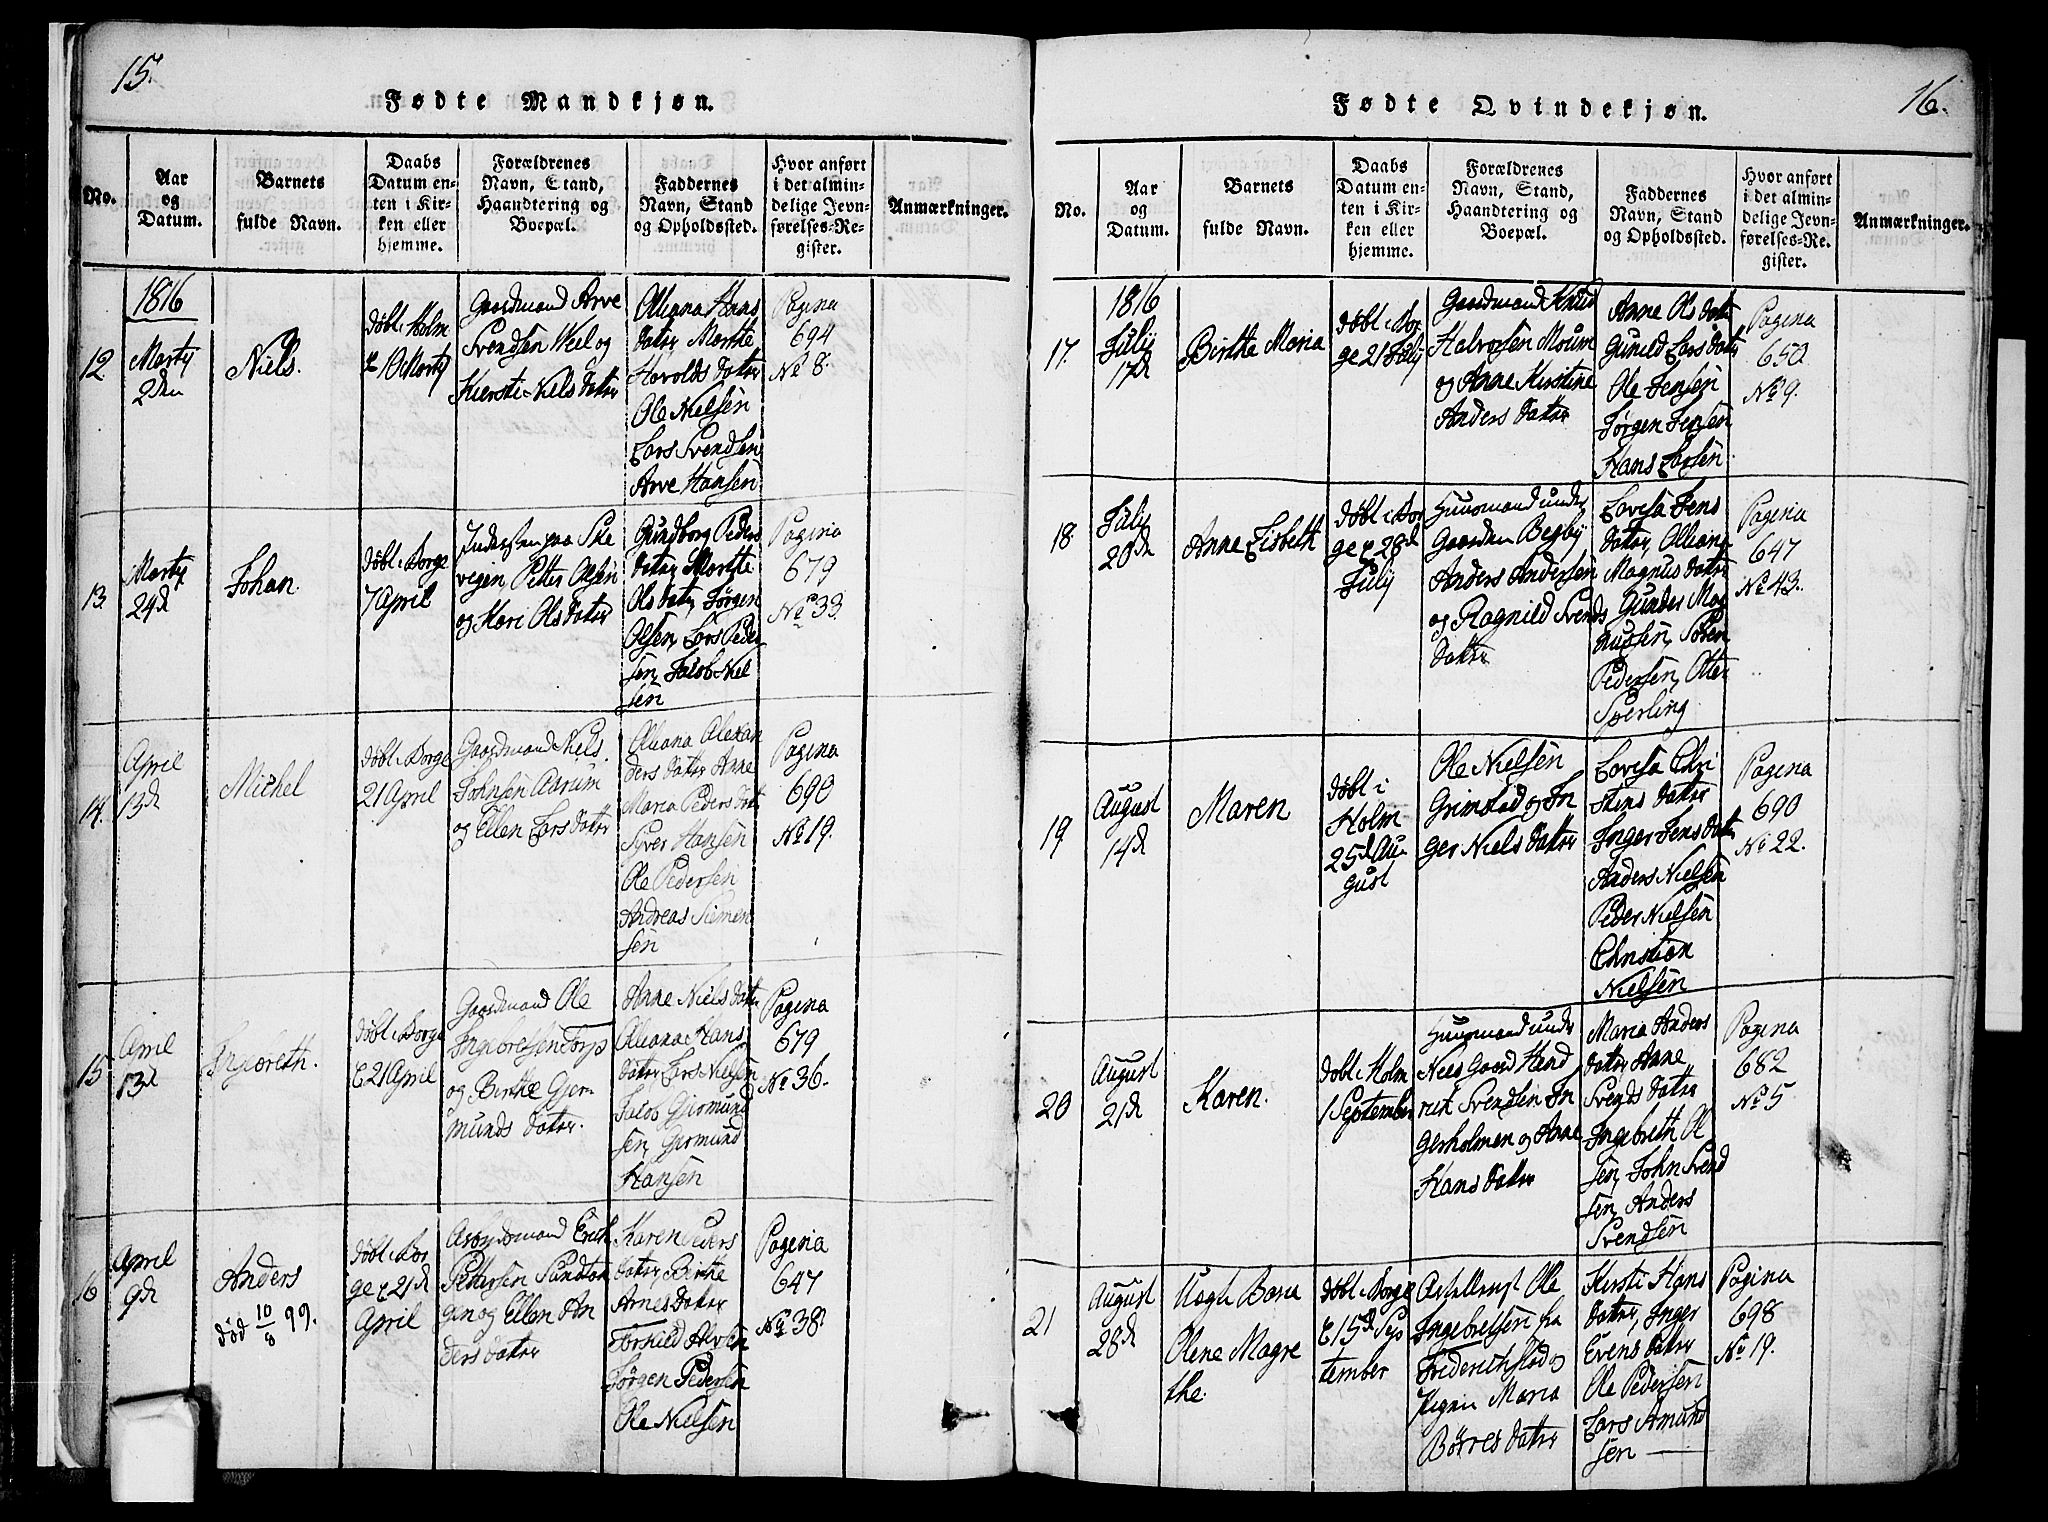 15.
Fødte Mandkjøn.
No.
Aar
og
Datum.
Barnets
fulde Navn.
Daabs
Datum en-
ten i Kir-
ken eller
hjemme.
Forældrenes
Navn, Stand,
Haandtering og
Boepæl.
Faddernes
Navn, Stand
og Opholdssted.
Hvor anført
i det almin-
delige Jevn-
førelses-Re-
gister.
Anmærkninger.
1816
12
Marty
2den
Niels.
døbt i Holm
Marty
Gaardmand Arve
Svendsen Weel og
Kiersti Niels datter
Olleana Hans
datter, Marthe
Harolds datter
Ole Nielsen
Lars Svendsen
Arve Hansen
Pagina
694
No 8.
13.
Marty
24d
Johan.
døbt i Borge
7 April
Inderst paa Ske
vigen, Petter Olsen
og Kari Ols datter
Gundborg Peders
datter, Marthe
Ols datter, Jørgen
Olsen, Lars Peder
sen, Jacob Niel
sen
Pagina
679
No 33.
14.
April
13d
Michel
døbt i Borge
21 April
Gaardmand Niels
Johnsen Aarum
og Ellen Lars datter
Oleana Alexan
ders datter Anne
Maria Peders datt
Syver Hansen
Ole Pedersen
Andreas Siemen
sen
Pagina
690
No 19.
15
April
13d
Ingbreth.
døbt i Borge
21 April
Gaardmand Ole
Ingbretsen Torp
og Birthe Gjer
munds datter.
Anne Niels datter
Oleana Hans
datter Lars Nielsen
Jacob Gjermund
sen, Germund
Hansen
Pagina
679
No 36.
16
April
9d
Anders
død 10/8 99.
døbt i Bor
ge 21d
April
Erich
Pettersen Sandtan
gen og Ellen An
ders datter
Karen Peders
datter Birthe
Arnes datter
Torkild Alvsen
Jørgen Pedersen
Ole Nielsen
Pagina
647
No 38
16.
Fødte Qvindekjøn.
No.
Aar
og
Datum.
Barnets
fulde Navn.
Daabs
Datum en-
ten i Kir-
ken eller
hjemme.
Forældrenes
Navn, Stand,
Haandtering og
Boepæl.
Faddernes
Navn, Stand
og Opholdssted.
Hvor anført
i det almin-
delige Jevn-
førelses-Re-
gister.
Anmærkninger.
1816
17.
July
17d
Birthe Maria
døbt i Bor
ge 21 July
Gaardmand Knud
Halvorsen Moum
og Anne Kirstine
Anders datter
Anne Ols datter
Gunild Lars datter
Ole Jensen
Jørgen Jensen
Hans Larsen
Pagina
650
No 9.
18.
July
20d
Anne Lisbeth
døbt i Bor
ge 28d
July
Huusmand under
Gaarden Begby
Anders Andersen
og Ragnild Svends
datter
Lovisa Jens
datter, Olleana
Magnus datter
Gunder Mag
nussen, Søren
Pedersen,
Sperling
Pagina
647
No 43.
19.
August
14d
Maren
døbt i
Holm
25d Au
gust
Ole Nielsen
Grimstad og In
ger Niels datter
Lovisa Chri
stens datter
Inger Jens datter
Anders Nielsen
Peder Nielsen
Christian
Nielsen
Pagina
690
No 22.
20
August
21d
Karen.
døbt i Holm
1 September
Huusmand under
Nees Gaard Hend
rik Svendsen In
gerholmen og Anne
Hans datter
Maria Anders
datter Anne
Svends datter
Ingebreth Ol
sen, John Svend
sen, Anders
Svendsen
Pagina
682
No 5
21
August
28d
Baria
Olene Magre
the.
døbt i Borge
15d Sep
tember
Ole
Ingebretsen fra
Friderichstad og
Pigen Maria
Børres datter
Kirsti Hans
datter, Inger
Evens datter
Ole Pedersen
Lars Amund
sen
Pagina
698
No 19.